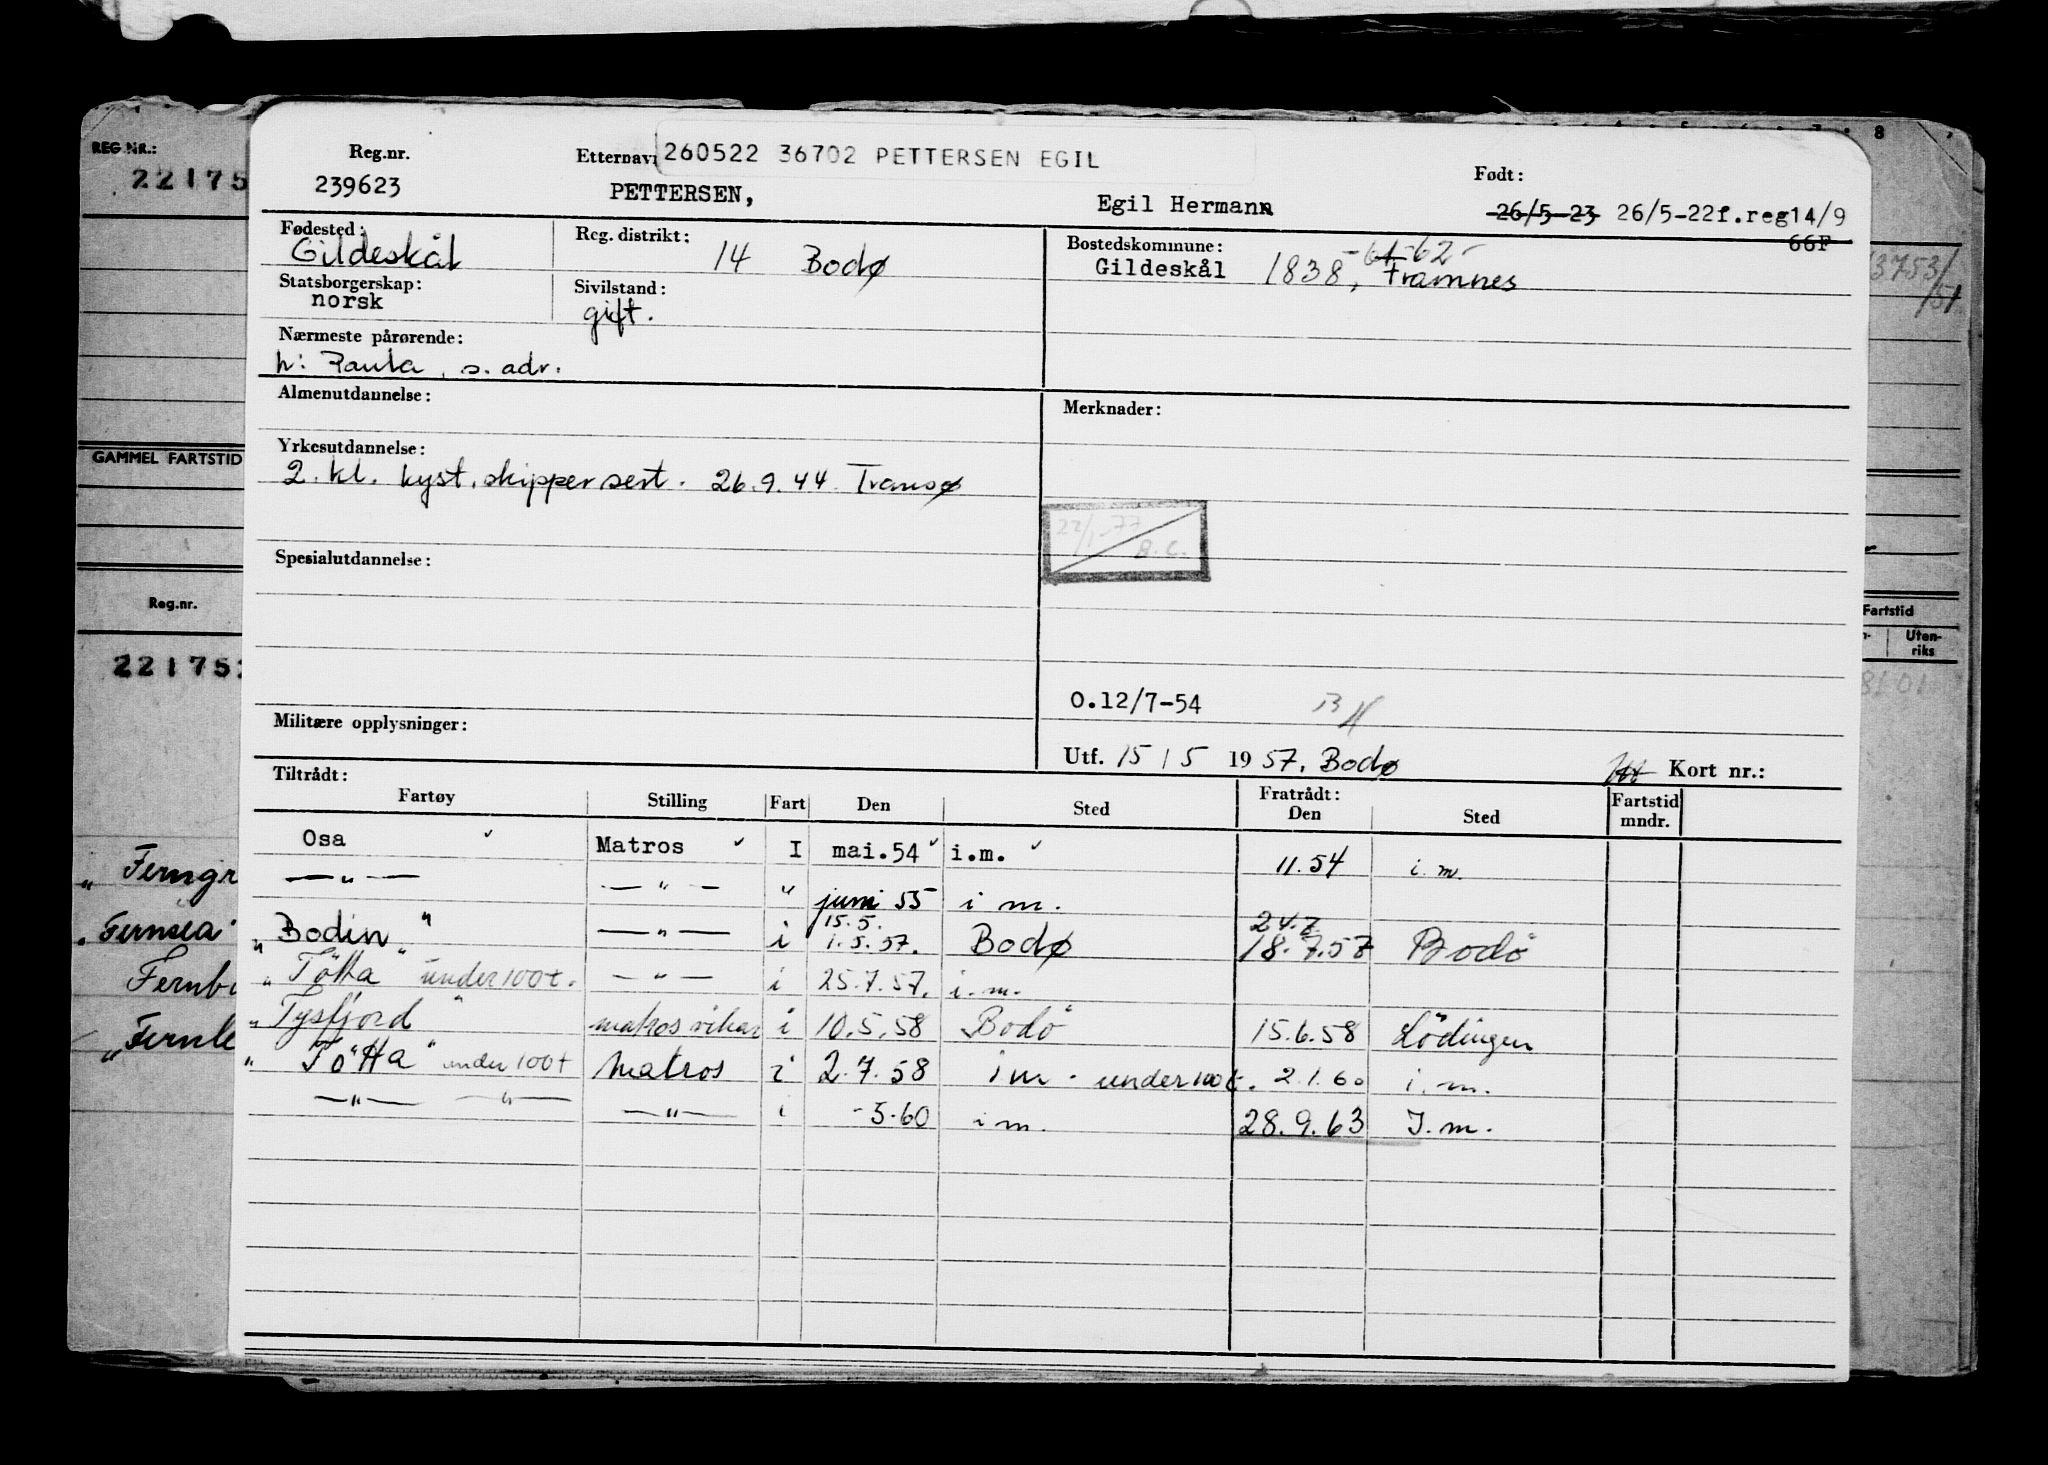 REG. NR.:
22175
GAMMEL FARTSTID
Reg.nr.
22175
Fernsea
8
3753/
/51
Fartstid
Uten-
riks
Reg.nr.
239623
Etternavn
260522 36702 PETTERSEN EGIL
PETTERSEN,
Egil Hermann
Født:
26/5-23 26/5-22f.reg14/9
66F
Fødested:
Gildeskål
Reg. distrikt:
14 Bodø
Bostedskommune:
Gildeskål 1838, Framnes
-61-62-
Statsborgerskap:
norsk
Sivilstand:
gift.
Nærmeste pårørende:
h: Paula, s. adr.
Almenutdannelse:
Merknader:
Yrkesutdannelse:
2. kl. kyst.skippersert. 26.9.44 Tromsø
22/1-77
B.C.
Spesialutdannelse:
O.12/7-54
Militære opplysninger:
Utf. 15/5 1957. Bodø
Kort nr.:
Tiltrådt:
Fartøy Stilling Fart Den Sted Fratrådt: Den Sted Fartstid mndr.
Osa Matros I mai.54 i.m. 11.54 i.m.
—"— —"— " juni 55 i m.
15.5. 24.7.
"Bodin" —"— i 1.5.57. Bodø 18.7.57 Bodö
"Tötta" under 100t. —"— i 25.7.57. i.m.
"Tysfjord" matros vikar i 10.5.58 Bodö 15.6.58 Lödingen
"Tötta" under 100t matros i 2.7.58 im. under 100t. 2.1.60 i.m.
—"— —"— —"— i -5-60 i m. 28.9.63 I.m.